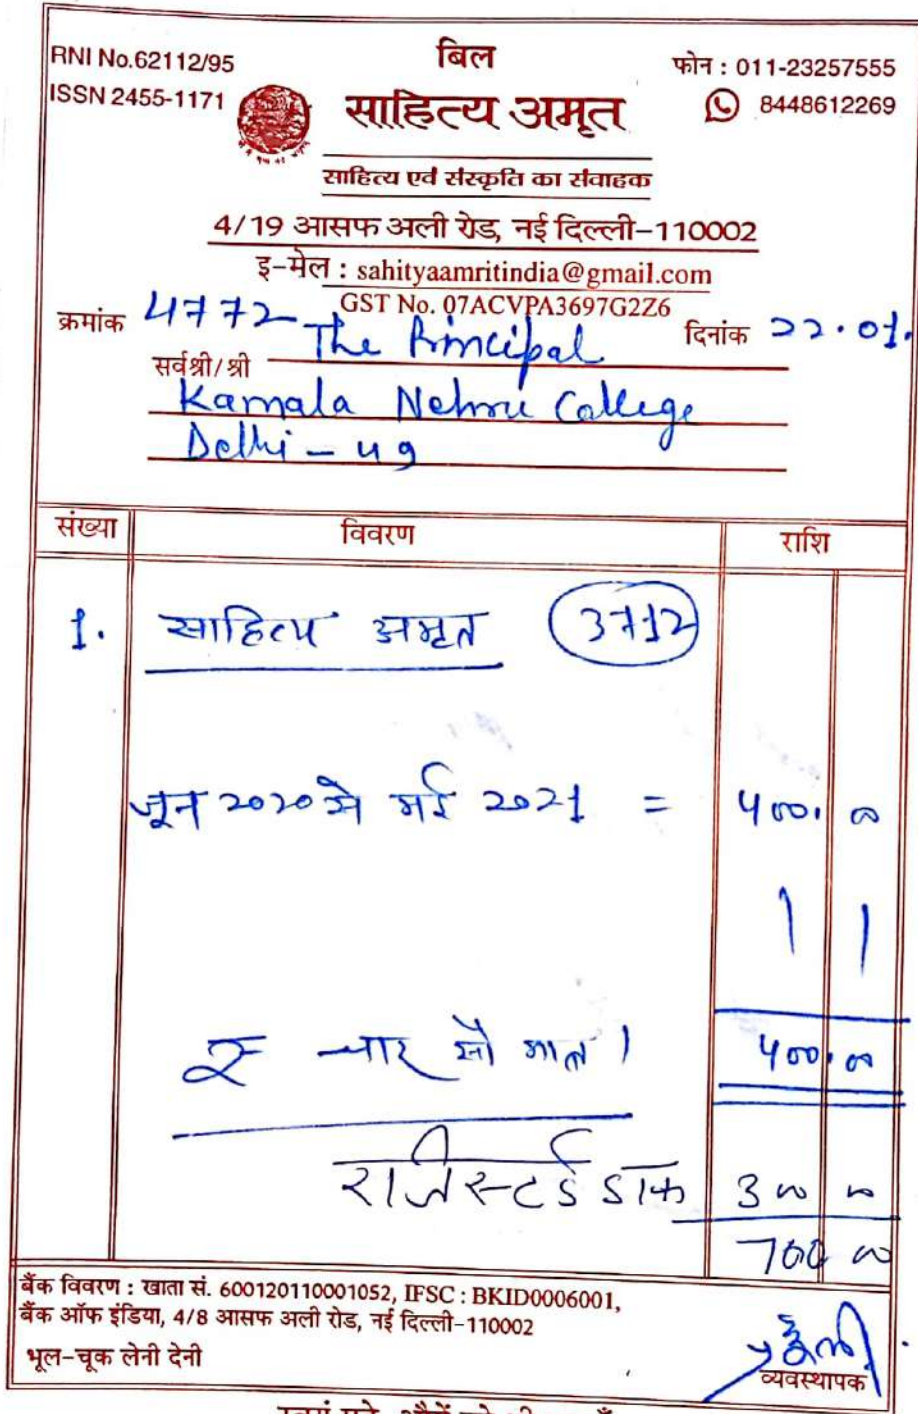 बिल
RNI No.62112/95
ISSN 2455-1171
साहित्य अमृत
फोन : 011-23257555
8448612269
साहित्य एवं संस्कृति का संवाहक
4/19 आसफ अली रोड, नई दिल्ली-110002
इ-मेल : sahityaamritindia@gmail.com
GST No. 07ACVPA3697G2Z6
क्रमांक 4772 दिनांक 22.01.
सर्वश्री/श्री The Principal
Kamala Nehru College
Delhi - 49
संख्या विवरण राशि
1. साहित्य अमृत 3712
जून 2020 से मई 2021 = 400.00
रु चार सौ मात्र । 400.00
रजिस्टर्ड डाक 300 00
700 00
बैंक विवरण : खाता सं. 600120110001052, IFSC : BKID0006001,
बैंक ऑफ इंडिया, 4/8 आसफ अली रोड, नई दिल्ली-110002
भूल-चूक लेनी देनी
व्यवस्थापक